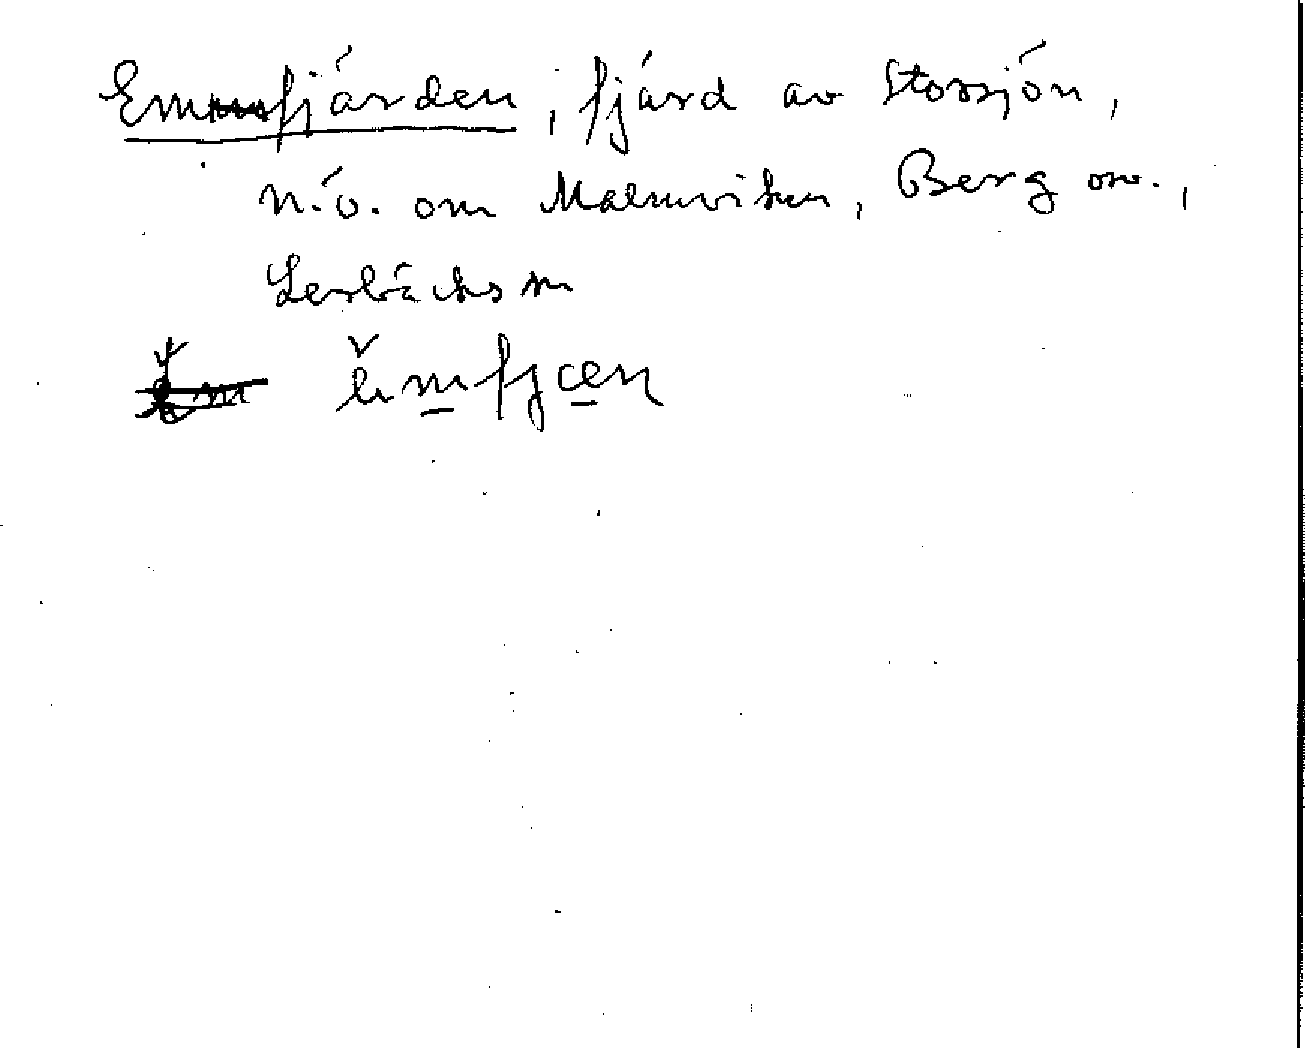 Emfjärden, fjärd av Storsjön,
n.ö. om Malmviken, Berg
Lerbäcks sn